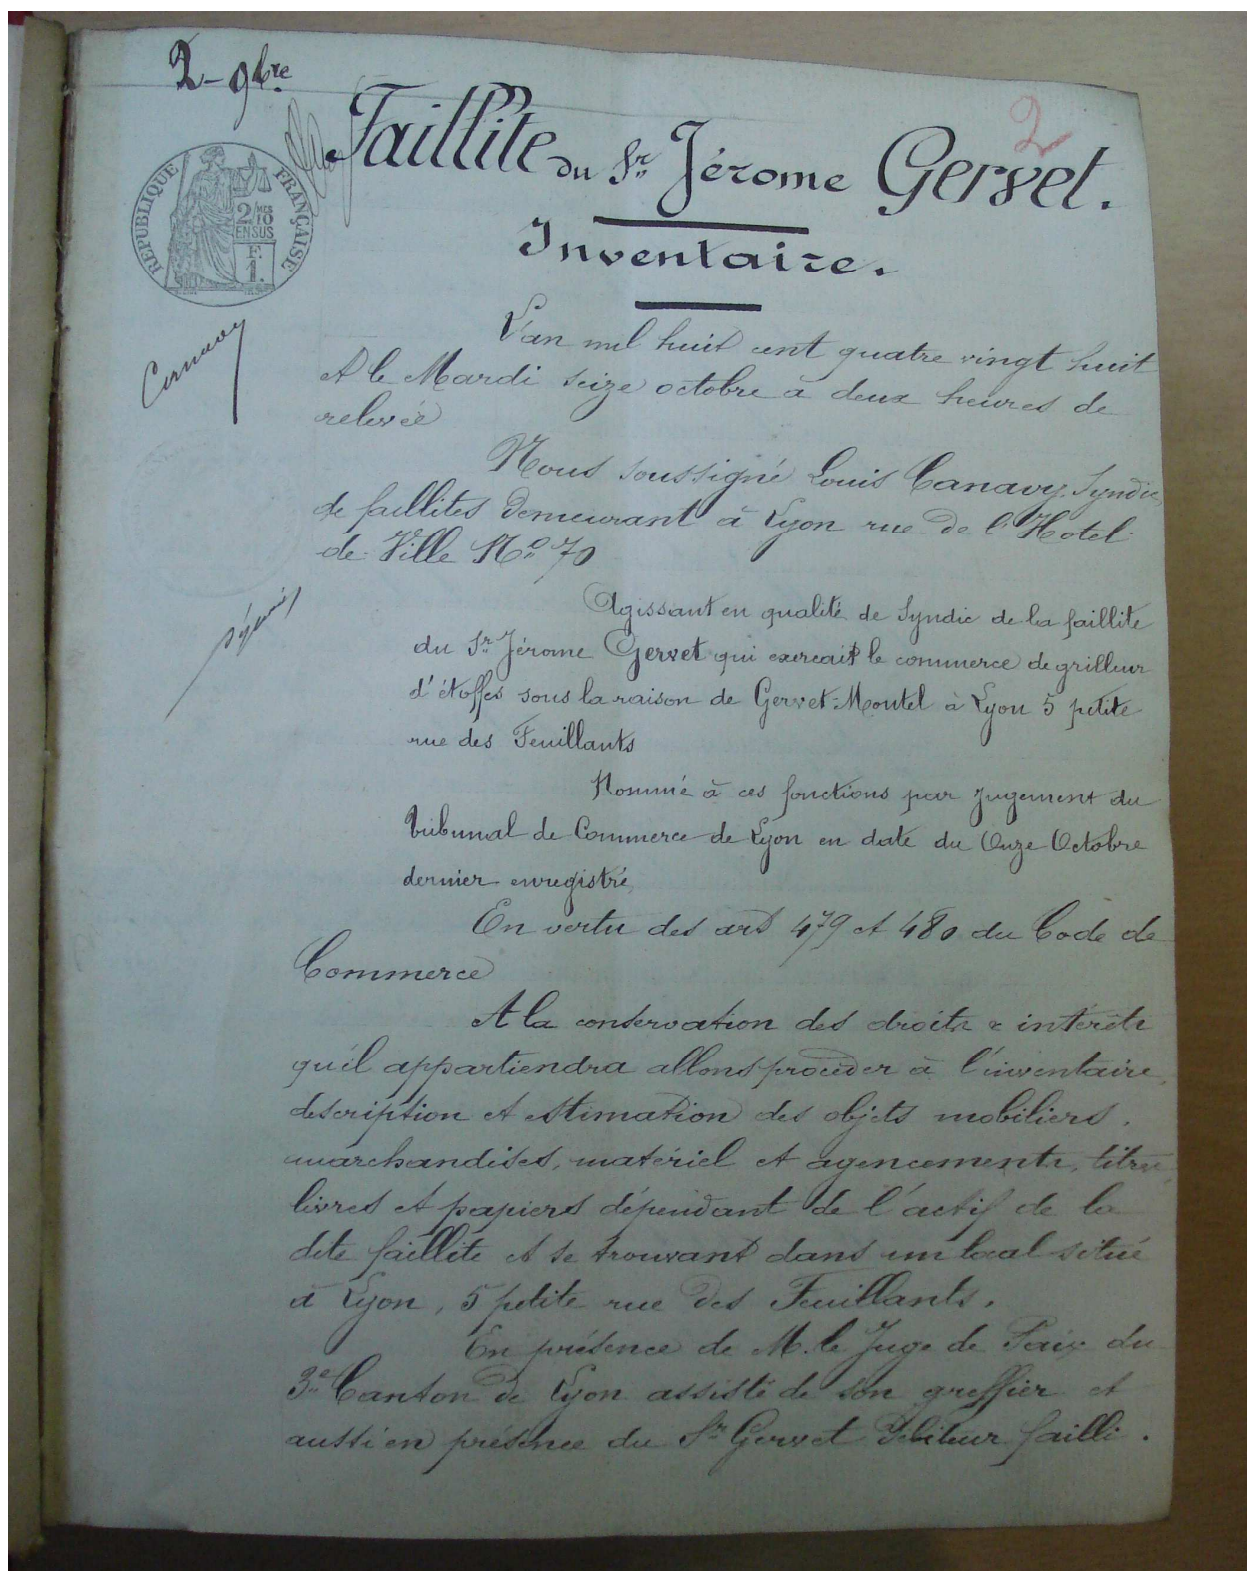 2 - 9bre
2
Faillite du Sr Jérome Gervet.
Inventaire.
REPUBLIQUE FRANÇAISE
2/10 EN SUS
F. 1.
L'an mil huit cent quatre vingt huit
et le Mardi seize octobre à deux heures de
relevée
Nous soussigné Louis Canavy Syndic
de faillites demeurant à Lyon rue de l'Hotel
de Ville No 70
Agissant en qualité de Syndic de la faillite
du Sr Jérome Gervet qui exercait le commerce de grilleur
d'étoffes sous la raison de Gervet-Montel à Lyon 5 petite
rue des Feuillants
Nommé à ces fonctions par jugement du
tribunal de Commerce de Lyon en date du Onze Octobre
dernier enregistré
En vertu des art 479 et 480 du Code de
Commerce
A la conservation des droits & intérêts
qu'il appartiendra allons procéder à l'inventaire,
description et estimation des objets mobiliers,
marchandises, matériel et agencements, titres
livres et papiers dépendant de l'actif de la
dite faillite et se trouvant dans un local situé
à Lyon, 5 petite rue des Feuillants.
En présence de M. le Juge de Paix du
3e Canton de Lyon assisté de son greffier et
aussi en présence du Sr Gervet débiteur failli.